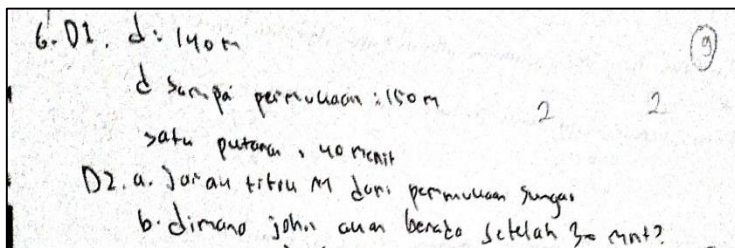 6. D1. d: 140 m
9
d sampai permukaan : 150 m
2 2
satu putaran, 40 menit
D2. a. Jarak titik M dari permukaan sungai
b. dimana john akan berada setelah 30 mnt?